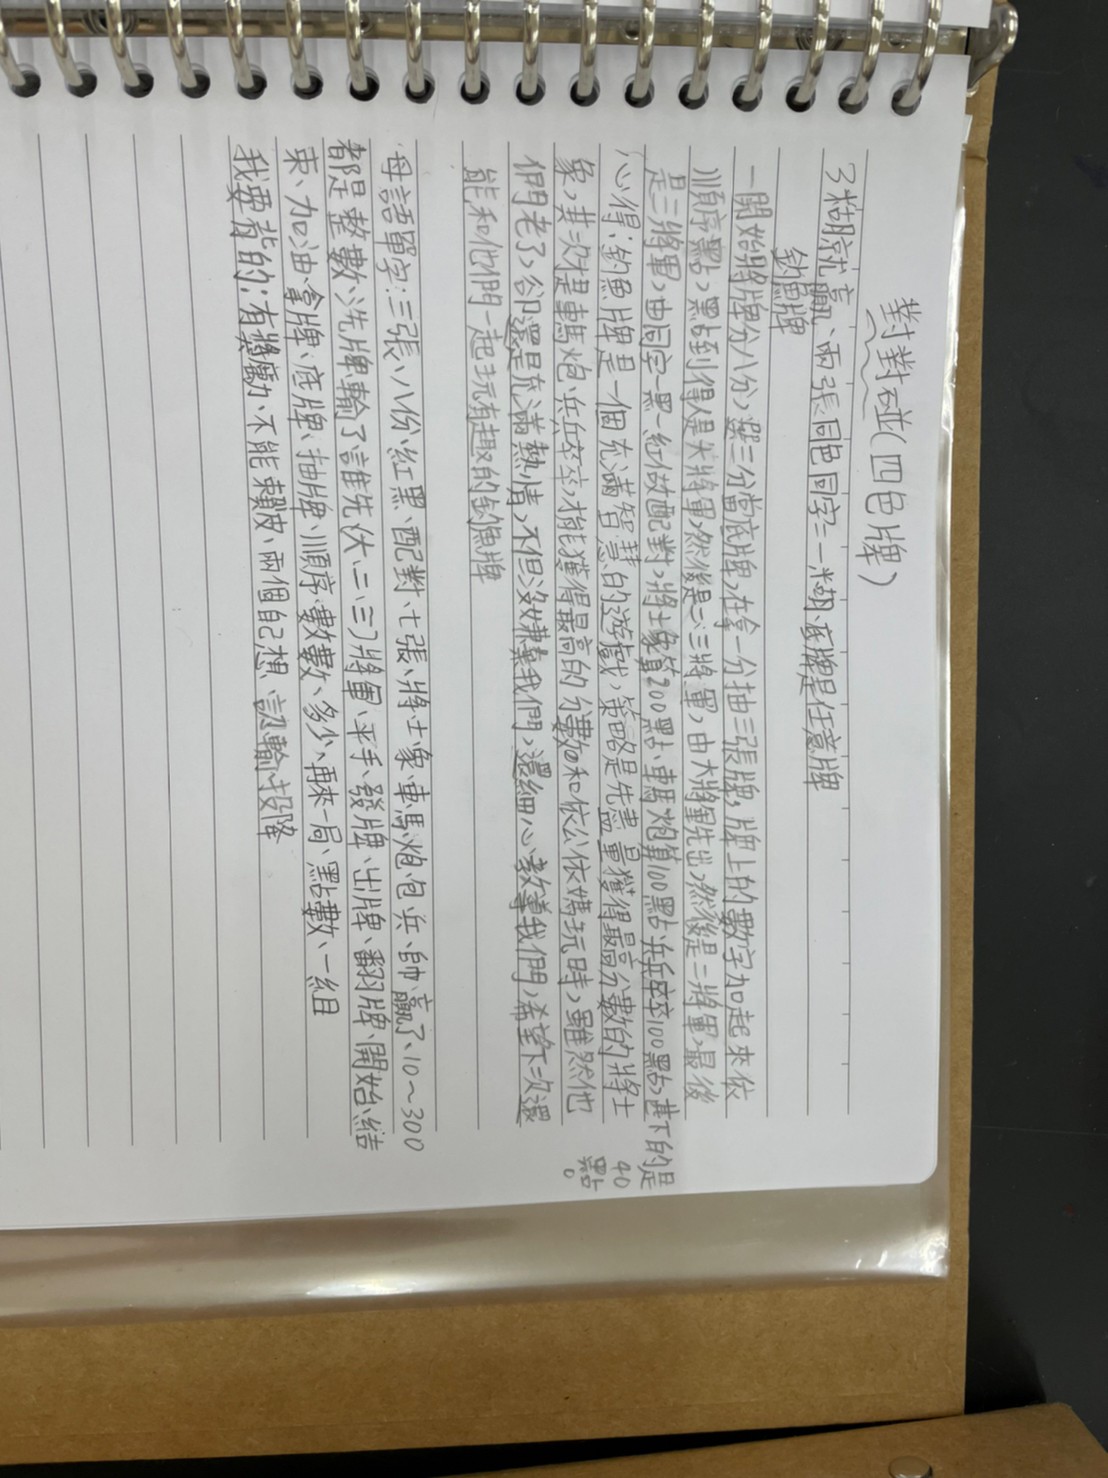 對對碰(四色牌)
3糊就贏、兩張同色同字=一糊、底牌是任意牌
釣魚牌
一開始將牌分八分，選三分當底牌，在拿一分抽三張牌，牌上的數字加起來依
順序點，點到得人是大將軍，然後是二、三將軍，由大將軍先出，然後是二將軍，最後
是三將軍，由同字一黑一紅做配對，將士象算200點、車馬炮算100點、兵兵卒卒100點，甚下的是
40
點。
心得：釣魚牌是一個充滿智慧的遊戲，策略是先盡量獲得最高分數的將士
象，其次是車馬炮、兵兵卒卒，才能獲得最高的分數。和依公依媽玩時，雖然他
們老了，卻還是充滿熱情，不但沒嫌棄我們，還細心教導我們，希望下次還
能和他們一起玩有趣的釣魚牌
母語單字：三張、八份、紅黑、配對、七張、將士象、車馬炮包兵、帥、贏了、10~300
都是整數、洗牌、輸了、誰先(大、二、三)將軍、平手、發牌、出牌、翻牌、開始、結
束、加油、拿牌、底牌、抽牌、順序、數數、多少、再來一局、點數、一組
我要背的：有獎勵、不能賴皮、兩個自己想、認輸、投降